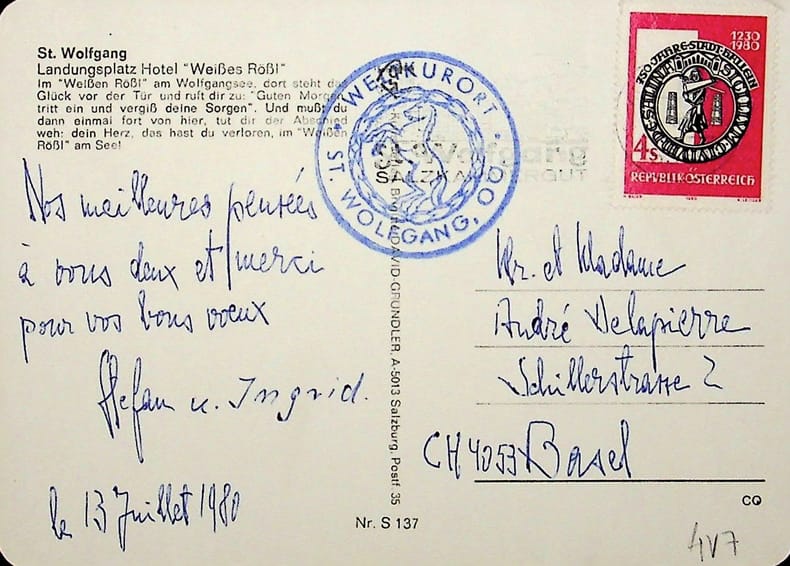 St. Wolfgang
Landungsplatz Hotel "Weißes Rößl"
Im "Weißen Rößl" am Wolfgangsee, dort steht das
Glück vor der Tür und ruft dir zu: "Guten Morgen,
tritt ein und vergiß deine Sorgen". Und mußt du
dann einmal fort von hier, tut dir der Abschied
weh: dein Herz, das hast du verloren, im "Weißen
Rößl" am See!
Nos meilleures pensées
à vous deux et merci
pour vos bons voeux
Stefan u. Ingrid.
le 13 Juillet 1980
WELTKURORT
ST. WOLFGANG, OÖ
DAVID-GRÜNDLER, A-5013 Salzburg, Postf. 35
Nr. S 137
1230
1980
750 JAHRE STADT HALLEIN
4S
REPUBLIK ÖSTERREICH
Mr. et Madame
André Delapierre
Schillerstrasse 2
CH 4053 Basel
CQ
4V7